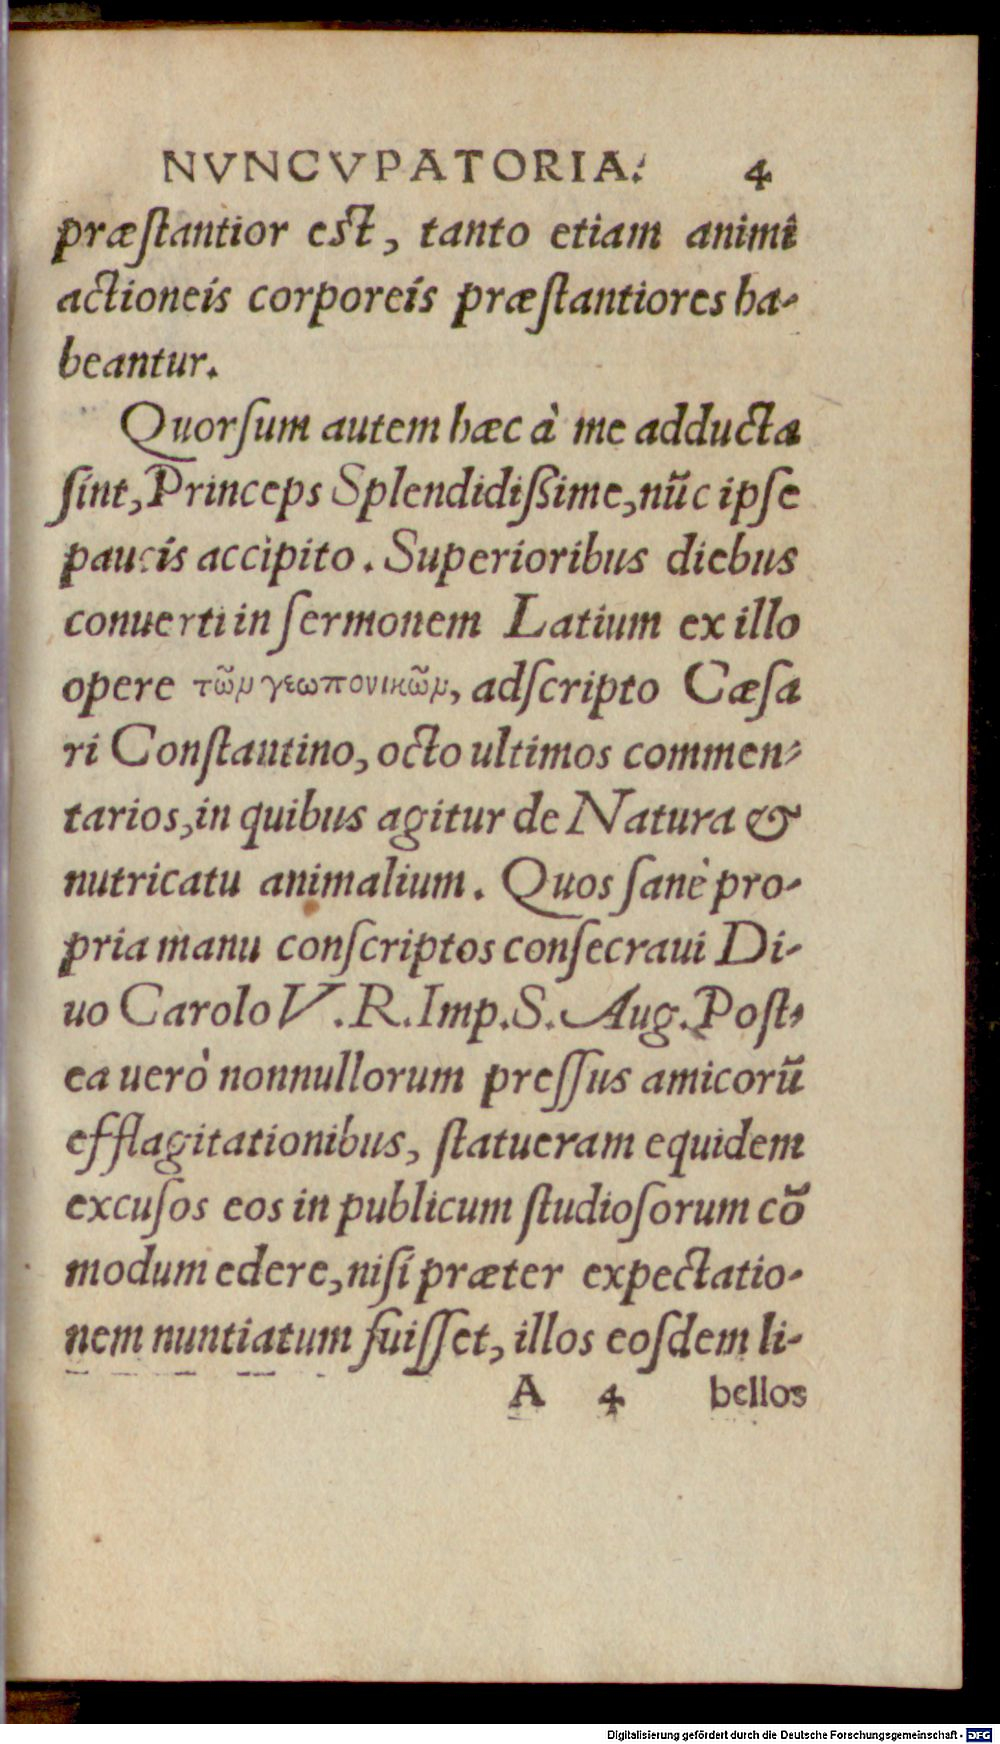 NVNCVPATORIA. 4
præſtantior eſt, tanto etiam animi
actioneis corporeis præſtantiores ha-
beantur.
Quorſum autem hæc à me adducta
ſint, Princeps Splendidißime, nũc ipſe
paucis accipito. Superioribus diebus
conuerti in ſermonem Latium ex illo
opere τῶν γεωπονικῶν, adſcripto Cæſa
ri Conſtantino, octo ultimos commen-
tarios, in quibus agitur de Natura &
nutricatu animalium. Quos ſanè pro-
pria manu conſcriptos conſecraui Di-
uo Carolo V. R. Imp. S. Aug. Poſt-
ea uerò nonnullorum preſſus amicorũ
efflagitationibus, ſtatueram equidem
excuſos eos in publicum ſtudioſorum cõ
modum edere, niſi præter expectatio-
nem nuntiatum fuiſſet, illos eoſdem li-
A 4 bellos
Digitalisierung gefördert durch die Deutsche Forschungsgemeinschaft - DFG